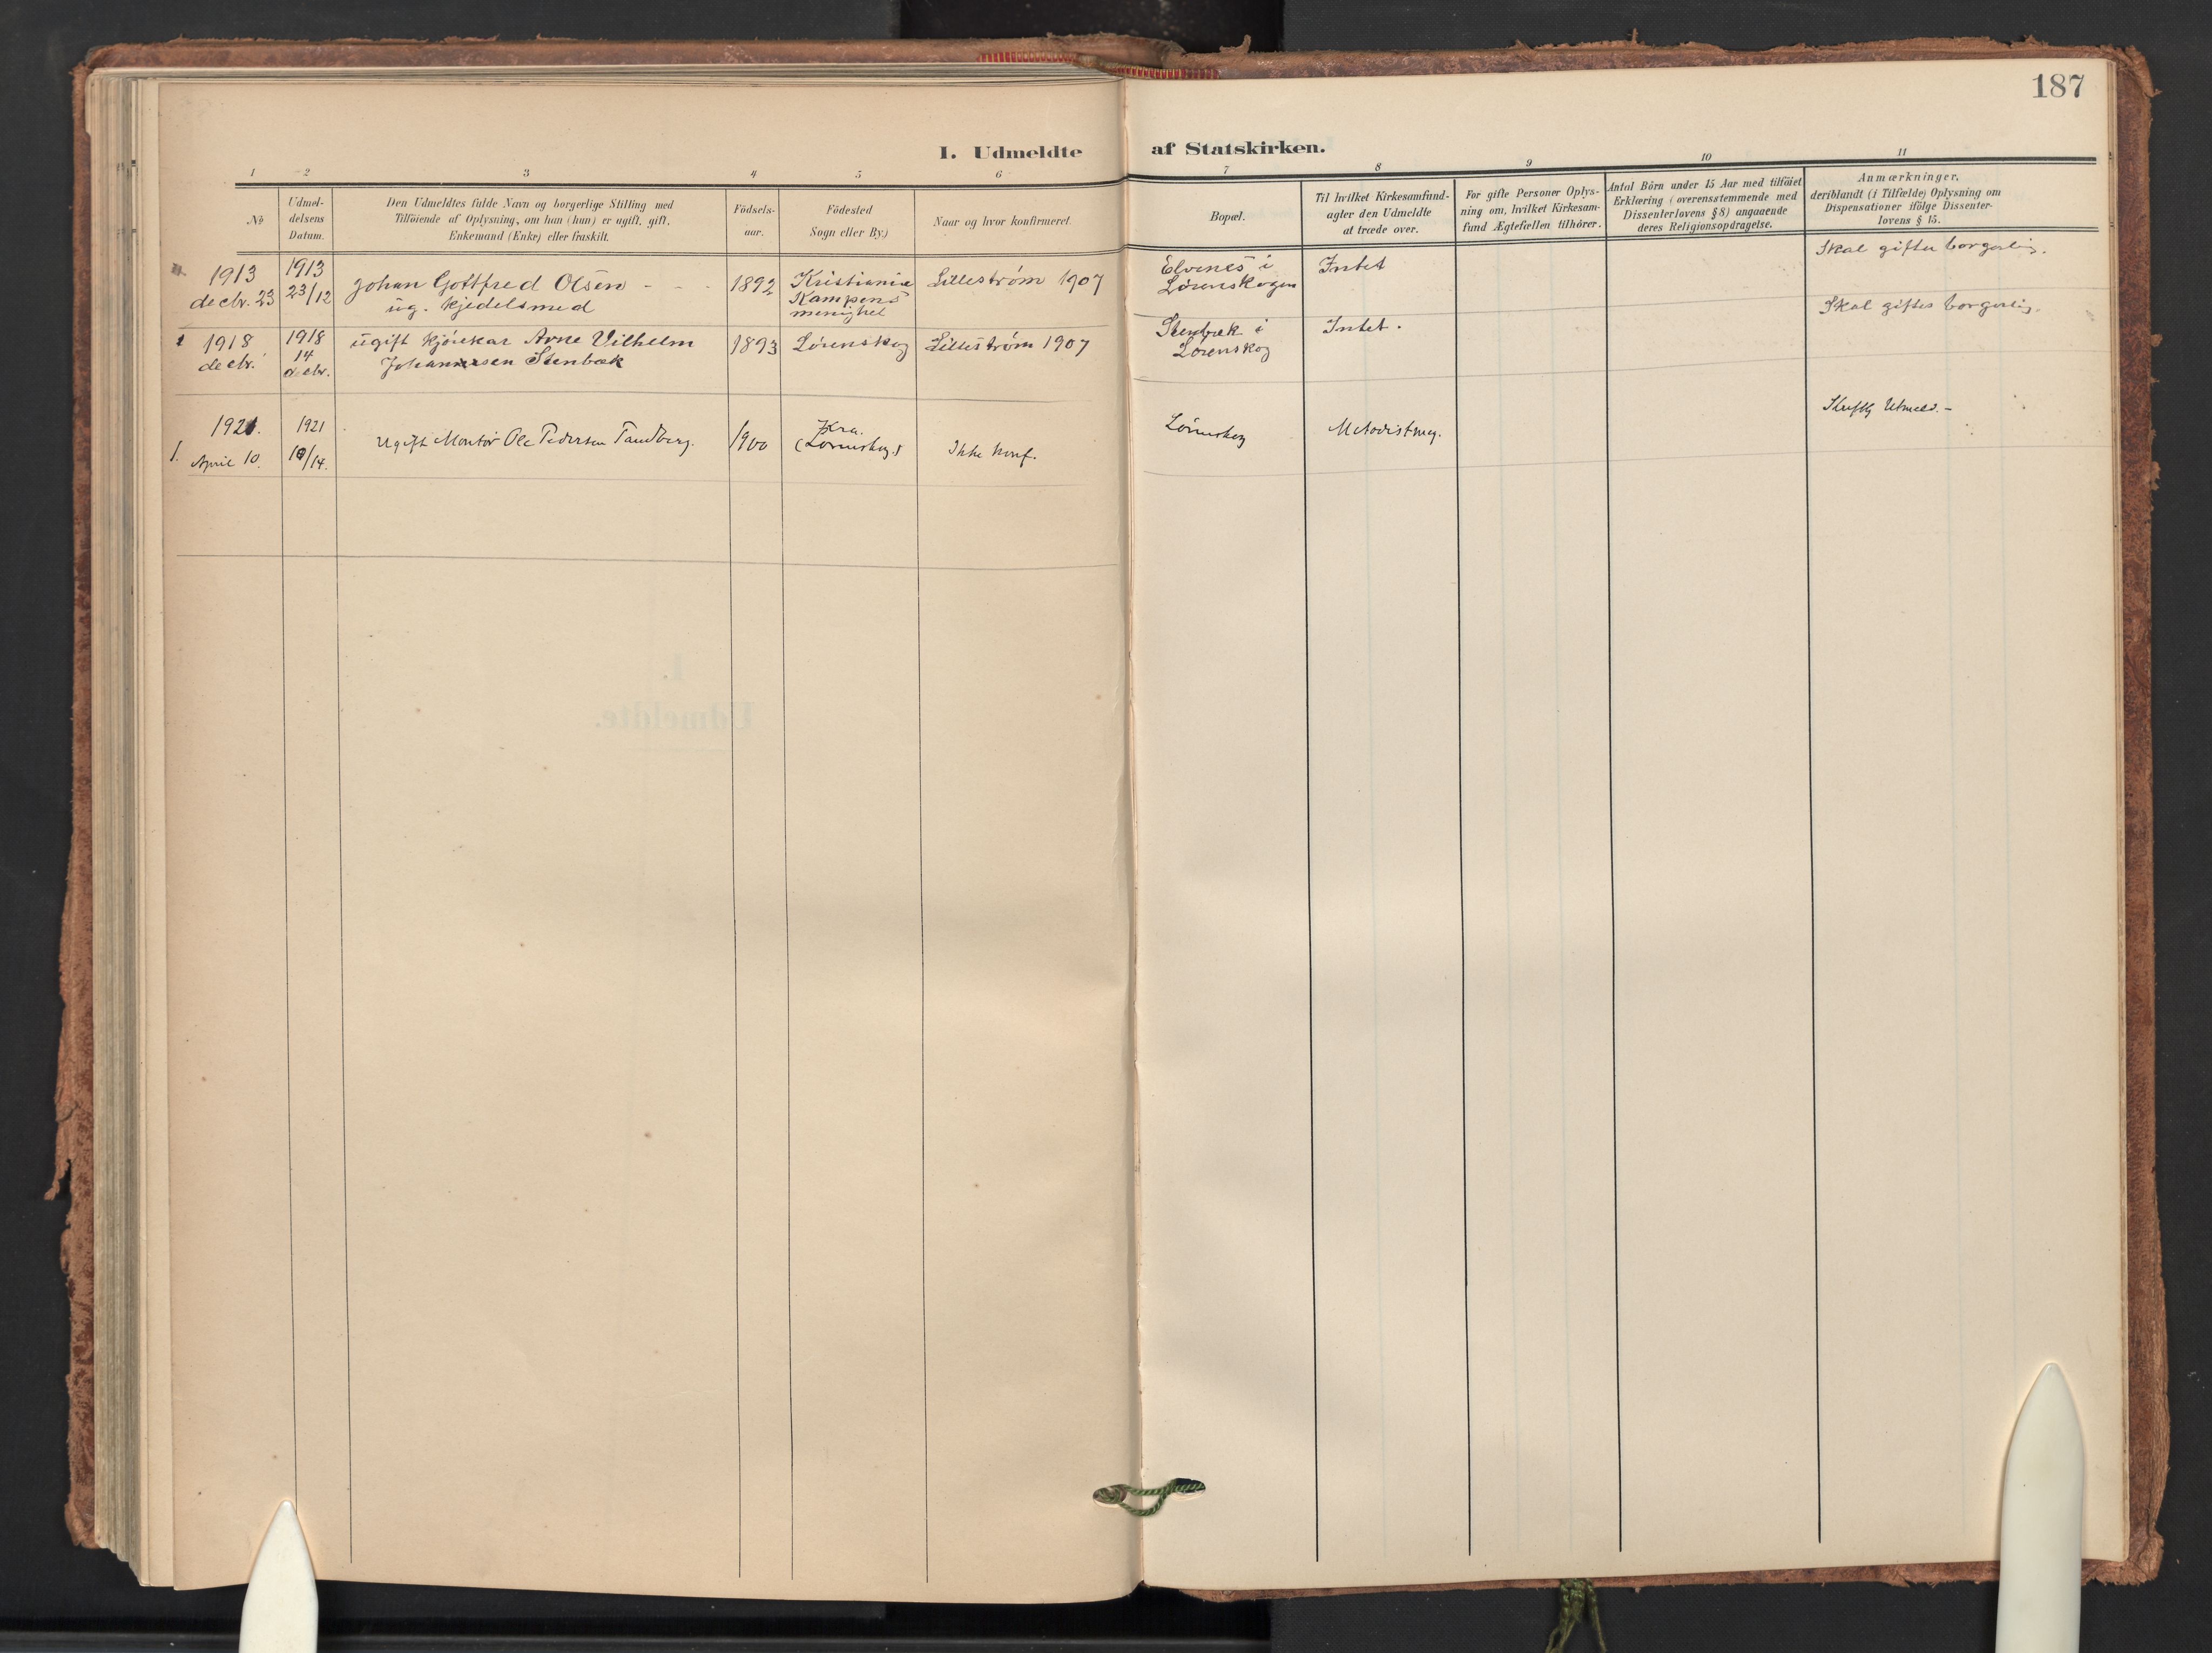 187
I. Udmeldte af Statskirken.
1 2 3 4 5 6 7 8 9 10 11
No
Udmel-
delsens
Datum.
Den Udmeldtes fulde Navn og borgerlige Stilling med
Tilföiende af Oplysning, om han (hun) er ugift, gift,
Enkemand (Enke) eller fraskilt.
Födsels-
aar.
Födested
Sogn eller By.)
Naar og hvor konfirmeret.
Bopæl.
Til hvilket Kirkesamfund-
agter den Udmeldte
at træde over.
For gifte Personer Oplys-
ning om, hvilket Kirkesam-
fund Ægtefællen tilhörer.
Antal Börn under 15 Aar med tilföiet
Erklæring (overensstemmende med
Dissenterlovens § 8) angaaende
deres Religionsopdragelse.
Anmærkninger,
deriblandt (i Tilfælde) Oplysning om
Dispensationer ifölge Dissenter-
lovens § 15.
1913
decbr. 23
1913
23/12
Johan Gottfred Olsen - - -
ug. kjedelsmed
1892
Kristiania
Kampens
menighet
Lillestrøm 1907
Elvenes i
Lørenskogen
Intet
Skal giftes borgerlig.
1 1918
decbr.
1918
14
decbr.
ugift kjøreskar Arne Vilhelm
Johannesen Stenbæk
1893
Lørenskog
Lillestrøm 1907
Stenbæk i
Lørenskog
Intet.
Skal giftes borgerlig.
1921.
1. April 10.
1921
10/14.
Ugift Montør Ole Pedersen Tandberg.
1900
Kra.
(Lørenskog.)
Ikke konf.
Lørenskog
Metodistmeg.
Skriftlig Utmeld. -
I.
Udmeldte.